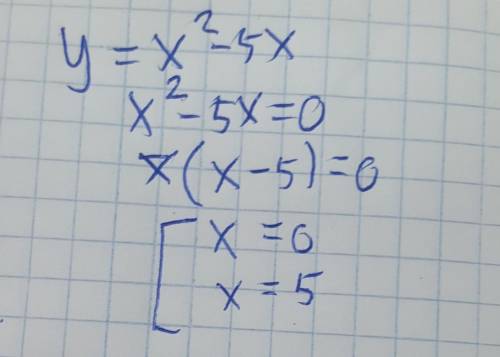 y = x² - 5x
x² - 5x = 0
x(x - 5) = 0
[ x = 0
x = 5